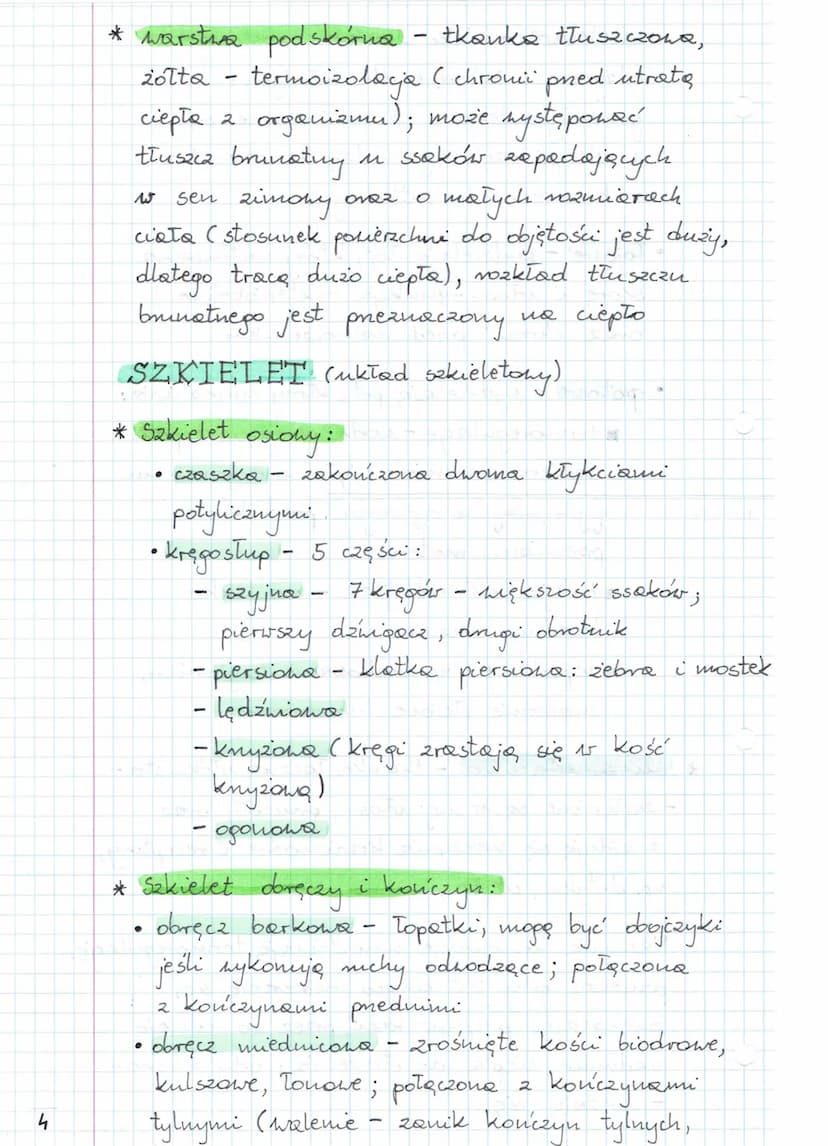 * warstwa podskórna - tkanka tłuszczowa,
żółta - termoizolacja (chroni przed utratą
ciepła z organizmu); może występować
tłuszcz brunatny u ssaków zapadających
w sen zimowy oraz o małych rozmiarach
ciała (stosunek powierzchni do objętości jest duży,
dlatego tracą dużo ciepła), rozkład tłuszczu
brunatnego jest przeznaczony na ciepło
SZKIELET (układ szkieletowy)
* Szkielet osiowy:
• czaszka - zakończona dwoma kłykciami
potylicznymi
• kręgosłup - 5 części:
- szyjna - 7 kręgów - większość ssaków;
pierwszy dźwigacz, drugi obrotnik
- piersiowa - klatka piersiowa: żebra i mostek
- lędźwiowa
- krzyżowa (kręgi zrastają się w kość
krzyżową)
- ogonowa
* Szkielet obręczy i kończyn:
• obręcz barkowa - łopatki, mogą być obojczyki
jeśli wykonują ruchy odwodzące; połączona
z kończynami przednimi
• obręcz miednicowa - zrośnięte kości biodrowe,
kulszowe, łonowe; połączona z kończynami
4 tylnymi (walenie - zanik kończyn tylnych,